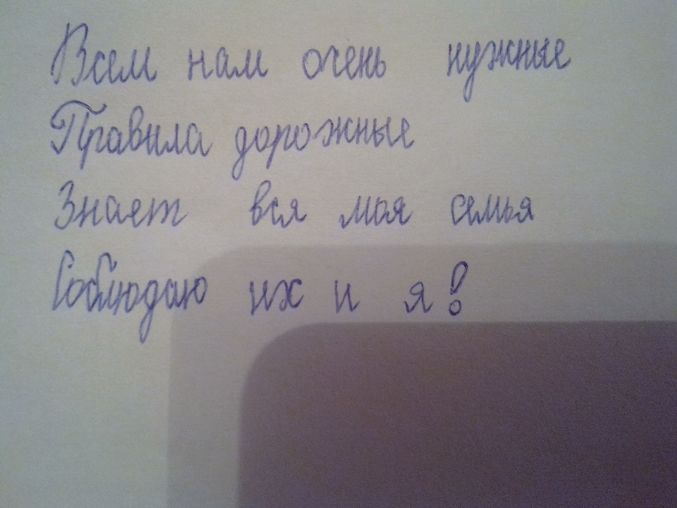 Всем нам очень нужные
Правила дорожные
Знает вся моя семья
Соблюдаю их и я!